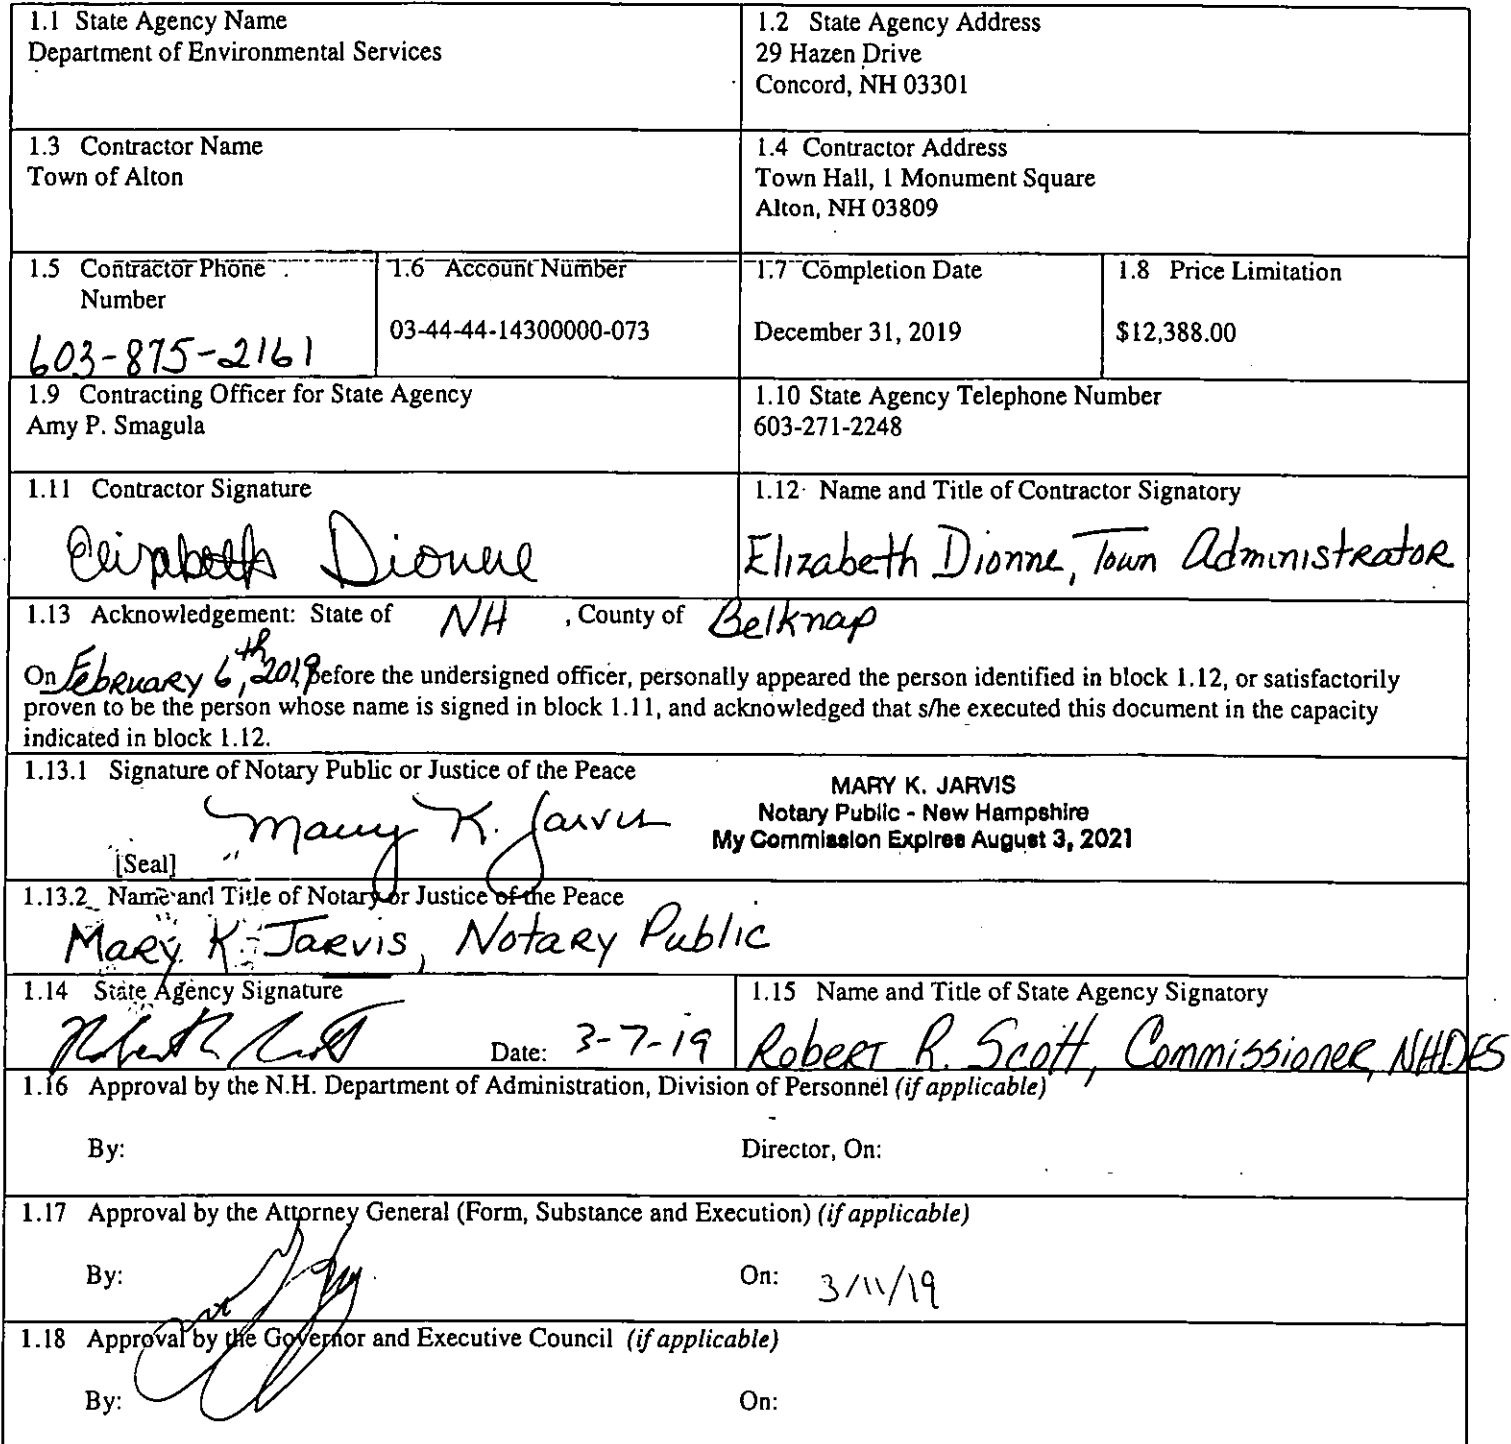 1.1 State Agency Name
Department of Environmental Services
1.2 State Agency Address
29 Hazen Drive
Concord, NH 03301
1.3 Contractor Name
Town of Alton
1.4 Contractor Address
Town Hall, 1 Monument Square
Alton, NH 03809
1.5 Contractor Phone
Number
603-875-2161
1.6 Account Number
03-44-44-14300000-073
1.7 Completion Date
December 31, 2019
1.8 Price Limitation
$12,388.00
1.9 Contracting Officer for State Agency
Amy P. Smagula
1.10 State Agency Telephone Number
603-271-2248
1.11 Contractor Signature
Elizabeth Dionne
1.12 Name and Title of Contractor Signatory
Elizabeth Dionne, Town Administrator
1.13 Acknowledgement: State of NH , County of Belknap
On February 6th, 2019 before the undersigned officer, personally appeared the person identified in block 1.12, or satisfactorily
proven to be the person whose name is signed in block 1.11, and acknowledged that s/he executed this document in the capacity
indicated in block 1.12.
1.13.1 Signature of Notary Public or Justice of the Peace
Mary K. Jarvis
[Seal]
MARY K. JARVIS
Notary Public - New Hampshire
My Commission Expires August 3, 2021
1.13.2 Name and Title of Notary or Justice of the Peace
Mary K. Jarvis, Notary Public
1.14 State Agency Signature
Robert R. Scott Date: 3-7-19
1.15 Name and Title of State Agency Signatory
Robert R. Scott, Commissioner, NHDES
1.16 Approval by the N.H. Department of Administration, Division of Personnel (if applicable)
By: Director, On:
1.17 Approval by the Attorney General (Form, Substance and Execution) (if applicable)
By: On: 3/11/19
1.18 Approval by the Governor and Executive Council (if applicable)
By: On: